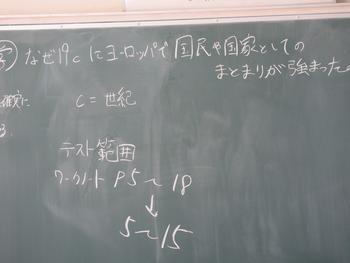 なぜ19cにヨーロッパで国民や国家としての
まとまりが強まった
c=世紀
テスト範囲
ワークノート P5～18
↓
5～15